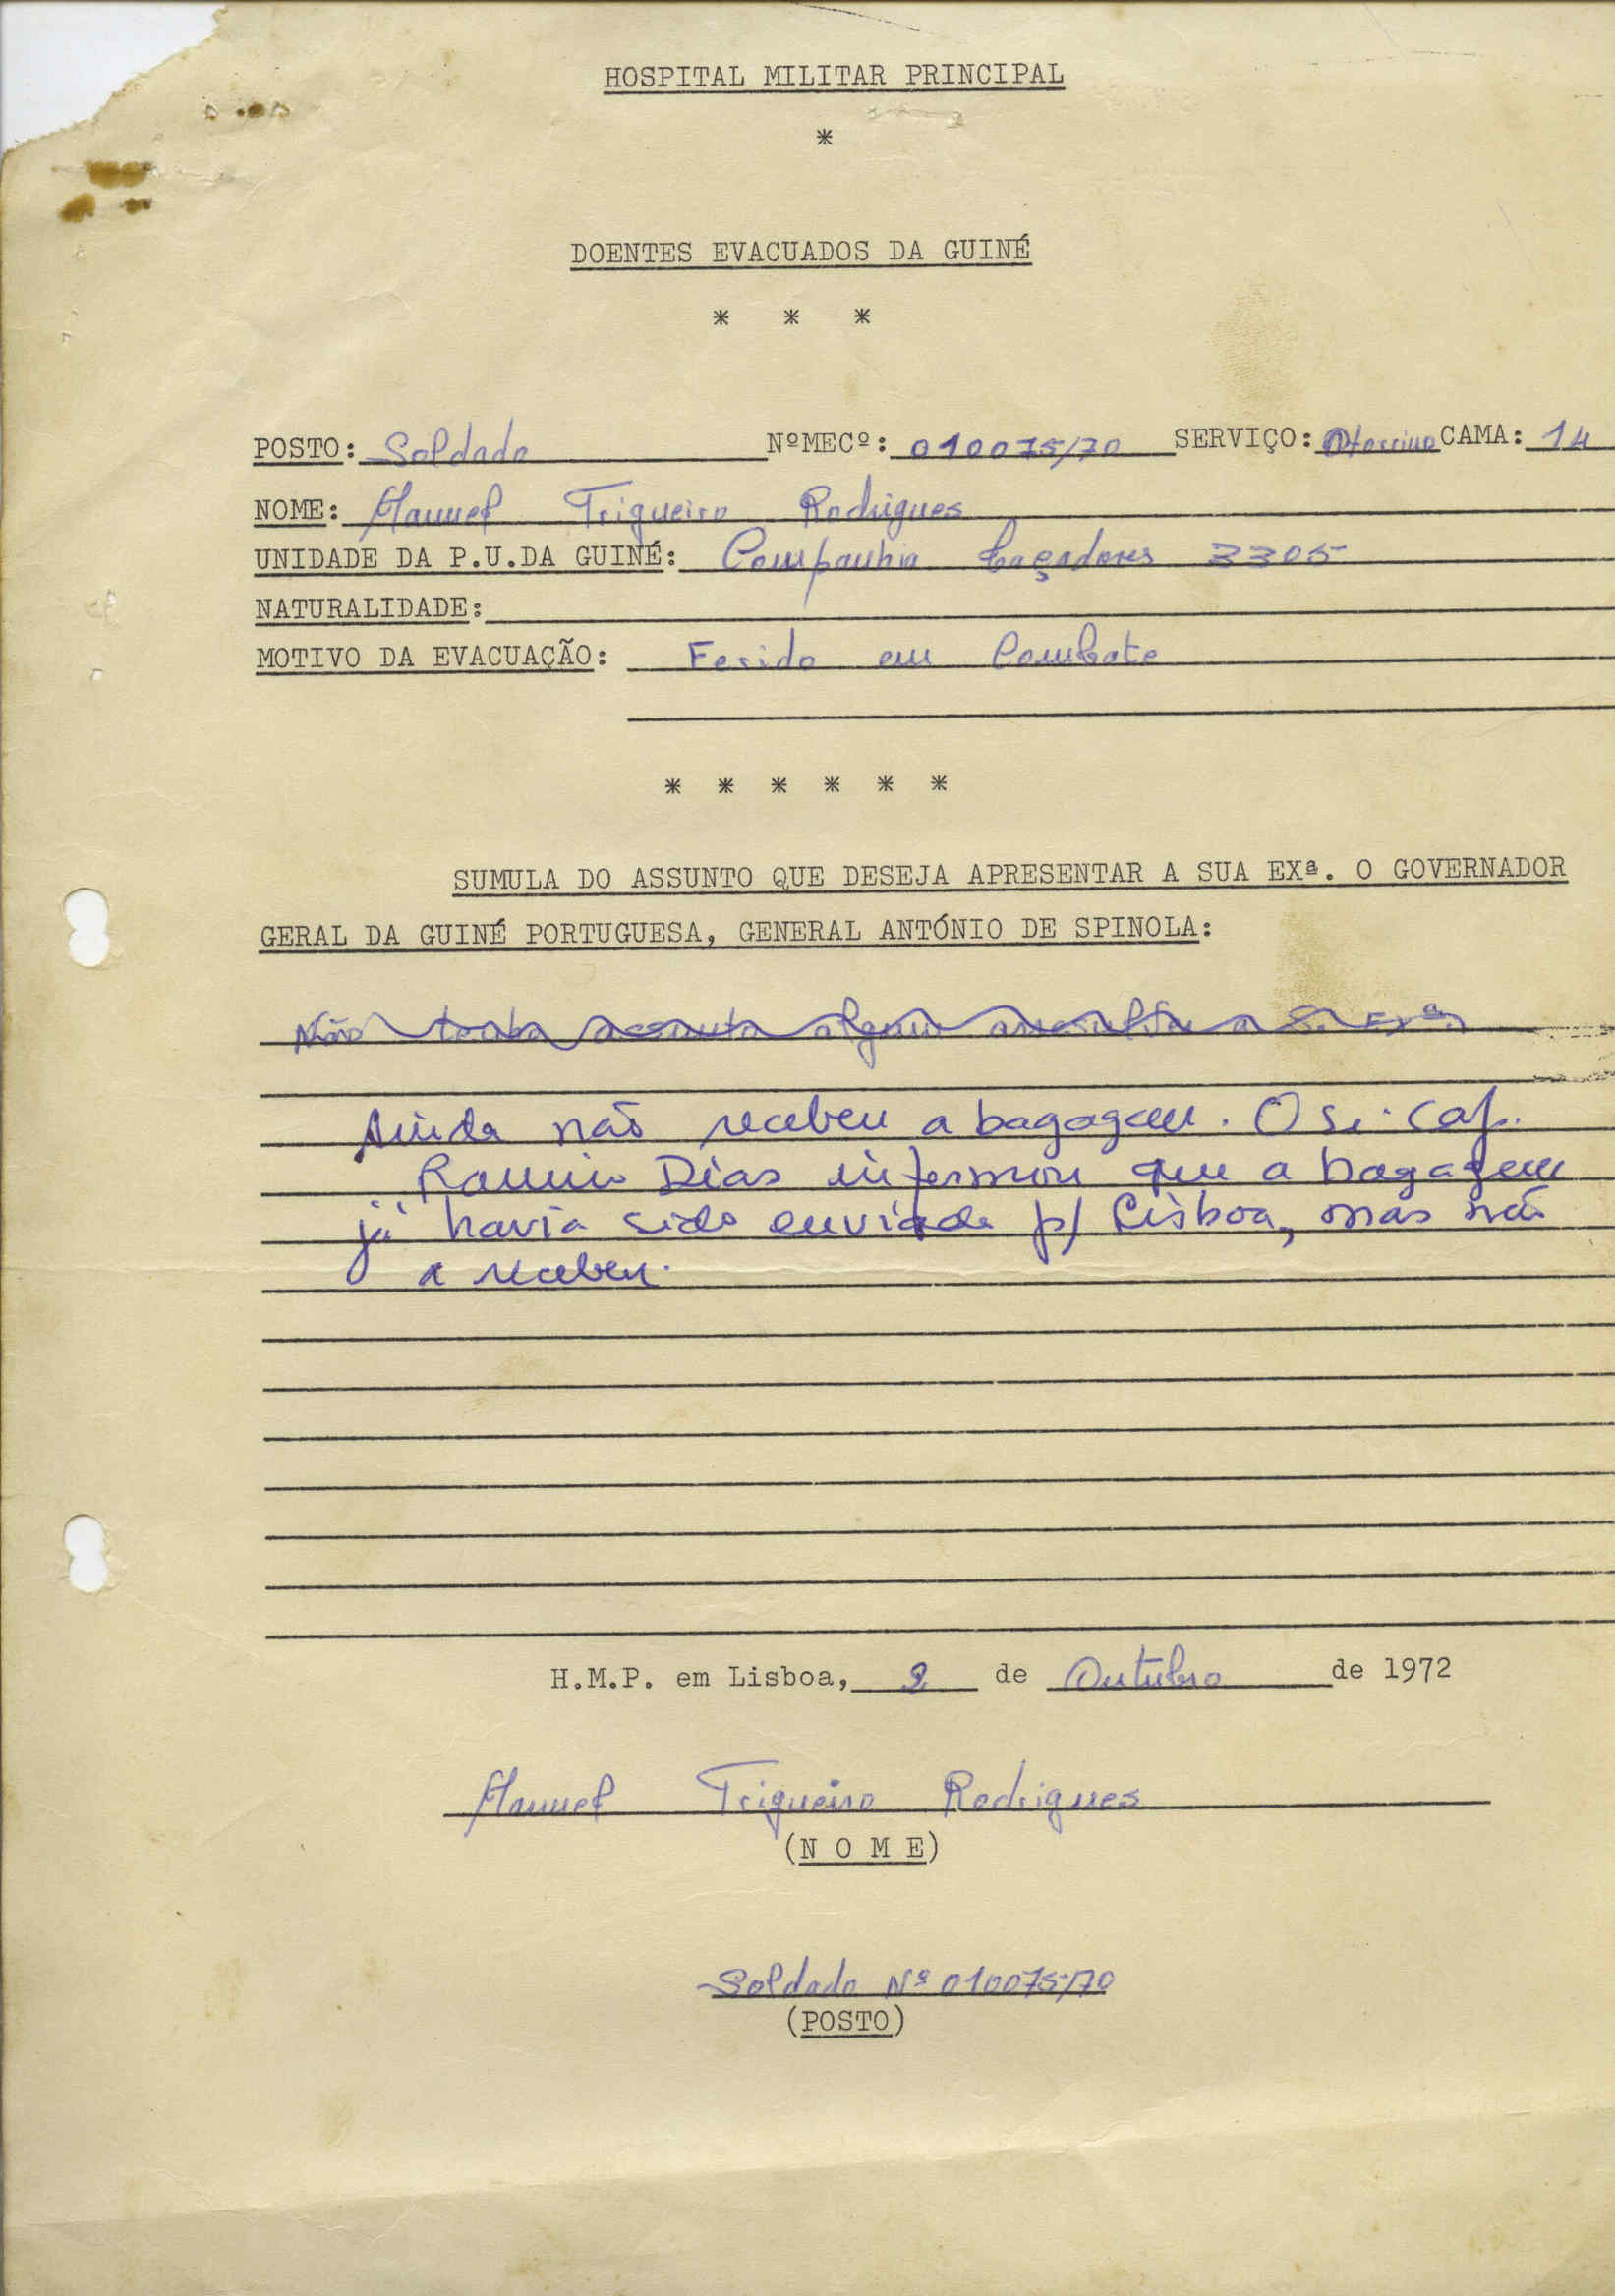 HOSPITAL MILITAR PRINCIPAL
*
DOENTES EVACUADOS DA GUINÉ
* * *
POSTO: Soldado NºMECº: 010075/70 SERVIÇO: CAMA: 14
NOME: Manuel Trigueiro Rodrigues
UNIDADE DA P.U.DA GUINÉ: Companhia Caçadores 3305
NATURALIDADE:
MOTIVO DA EVACUAÇÃO: Ferido em Combate
* * * * * *
SUMULA DO ASSUNTO QUE DESEJA APRESENTAR A SUA EXª. O GOVERNADOR
GERAL DA GUINÉ PORTUGUESA, GENERAL ANTÓNIO DE SPINOLA:
Não assunto algum a S. Exª.
Ainda não recebeu a bagagem. O Sr. Cap.
Ramiro Dias informou que a bagagem
já havia sido enviada p/ Lisboa, mas não
a recebeu.
H.M.P. em Lisboa, 2 de Outubro de 1972
Manuel Trigueiro Rodrigues
(N O M E)
Soldado Nº 010075/70
(POSTO)